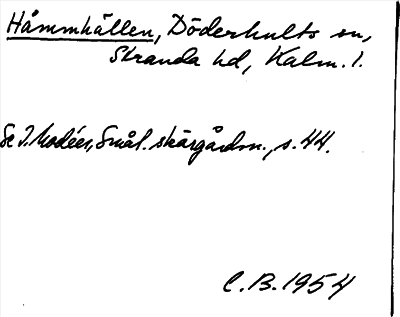 Håmmhällen, Döderhults sn,
Stranda hd, Kalm. l.
Se I. Modéer, Smål. skärgårdsn., s. 44.
C.B. 1954